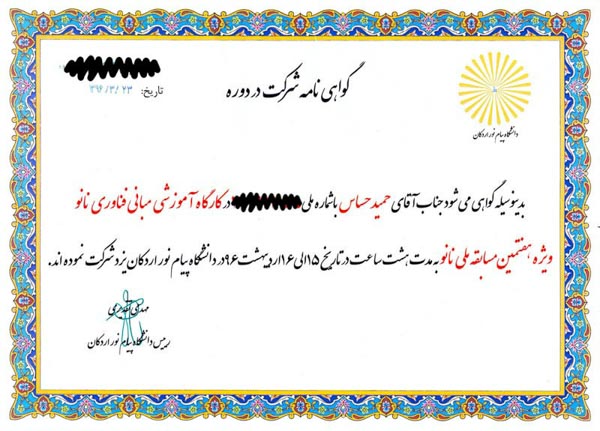 دانشگاه پیام نور اردکان
گواهی نامه شرکت در دوره
تاریخ: ۳۹۶/۳/۲۳
بدینوسیله گواهی می شود جناب آقای حمید حساس با شماره ملی در کارگاه آموزشی مبانی فناوری نانو
ویژه هفتمین مسابقه ملی نانو به مدت هشت ساعت در تاریخ ۱۵ الی ۱۶ اردیبهشت ۹۶ در دانشگاه پیام نور اردکان یزد شرکت نموده اند.
مهدی
رییس دانشگاه پیام نور اردکان